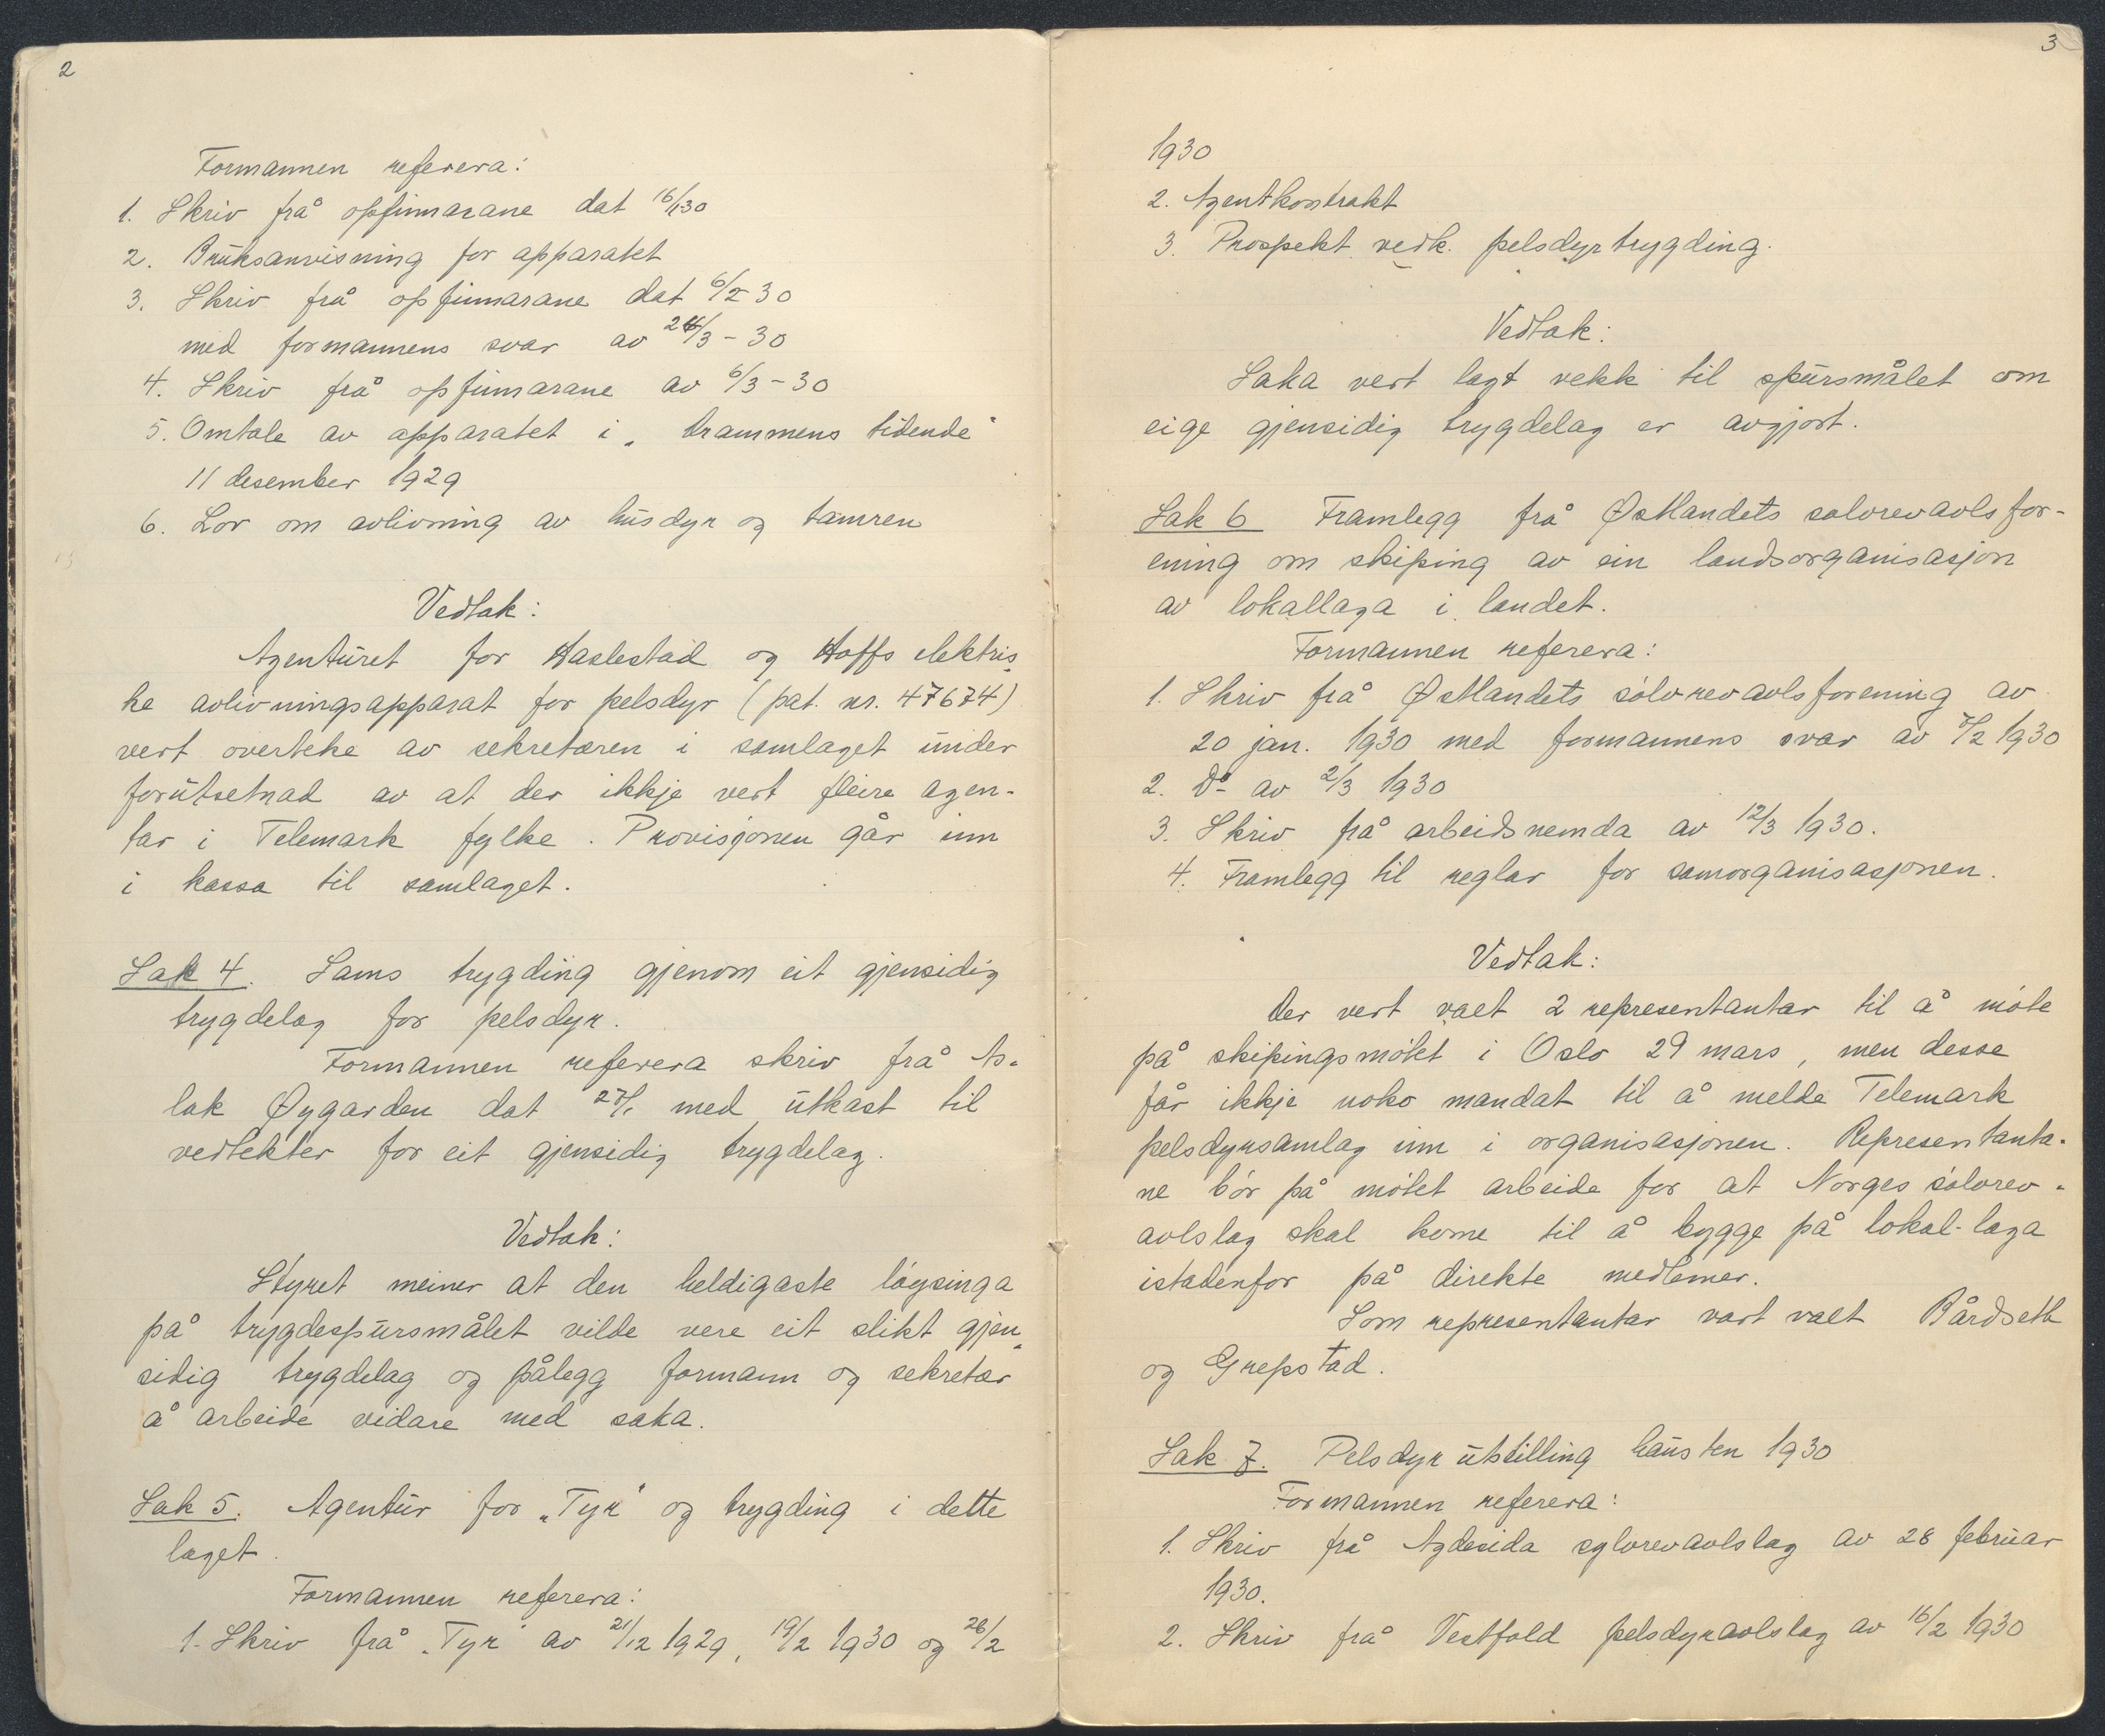 2
Formannen referera:
1. Skriv frå opfinnarane dat 16/1 30
2. Bruksanvisning for apparatet
3. Skriv frå opfinnarane dat 6/2 30
med formannens svar av 24/3 – 30
4. Skriv frå opfinnarane av 6/3 – 30
5. Omtale av apparatet i „Drammens tidende"
11 desember 1929
6. Lov om avlivning av husdyr og tamren
Vedtak:
Agenturet for Haslestad og Hoffs elektris-
ke avlivningsapparat for pelsdyr (pat. nr. 47674)
vert overteke av sekretæren i samlaget under
forutsetnad av at der ikkje vert fleire agen-
tar i Telemark fylke. Provisjonen går inn
i kassa til samlaget.
Sak 4. Sams trygding gjenom eit gjensidig
trygdelag for pelsdyr.
Formannen referera skriv frå As-
lak Øygarden dat 27/1 med utkast til
vedtekter for eit gjensidig trygdelag.
Vedtak:
Styret meiner at den heldigaste løysinga
på trygdespursmålet vilde vere eit slikt gjen-
sidig trygdelag og pålegg formann og sekretær
å arbeide vidare med saka.
Sak 5. Agentur for „Tyr" og trygding i dette
laget.
Formannen referera:
1. Skriv frå „Tyr" av 21/12 1929, 19/2 1930 og 26/2
3
1930
2. Agentkontrakt
3. Prospekt vedk. pelsdyrtrygding.
Vedtak:
Saka vert lagt vekk til spursmålet om
eige gjensidig trygdelag er avgjort.
Sak 6 Framlegg frå Østlandets sølvrevavlsfor-
ening om skiping av ein landsorganisasjon
av lokallaga i landet.
Formannen referera:
1. Skriv frå Østlandets sølvrevavlsforening av
20 jan. 1930 med formannens svar av 7/2 1930
2. Do av 2/3 1930
3. Skriv frå arbeidsnemda av 12/3 1930.
4. Framlegg til reglar for samorganisasjonen.
Vedtak:
Der vert valt 2 representantar til å møte
på skipingsmøtet i Oslo 29 mars, men desse
får ikkje noko mandat til å melde Telemark
pelsdyrsamlag inn i organisasjonen. Representanta-
ne bør på møtet arbeide for at Norges sølvrev-
avlslag skal kome til å bygge på lokal-laga
istadenfor på direkte medlemer.
Som representantar vart valt Bårdseth
og Grepstad.
Sak 7. Pelsdyrutstilling hausten 1930
Formannen referera:
1. Skriv frå Agdesida sylvrevavlslag av 28 februar
1930.
2. Skriv frå Vestfold pelsdyravlslag av 16/2 1930